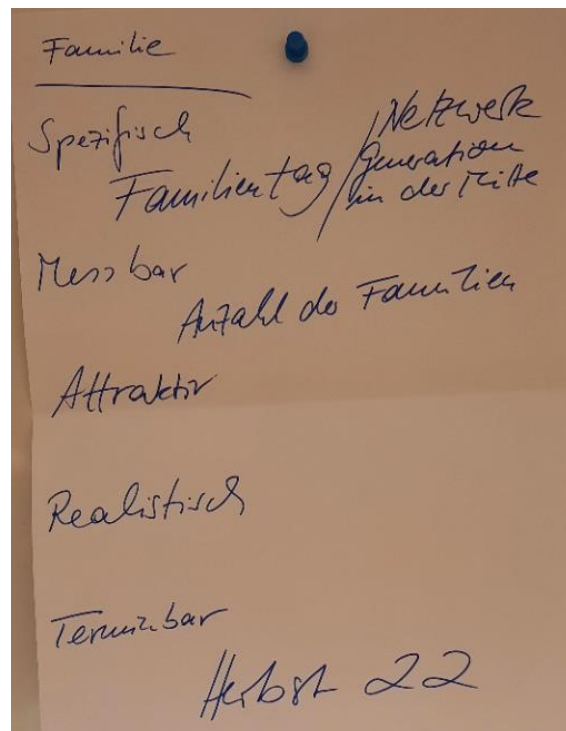 Familie
Spezifisch
Familientag / Netzwerk
Generation
in der Mitte
Messbar
Anzahl der Familien
Attraktiv
Realistisch
Terminbar
Herbst 22